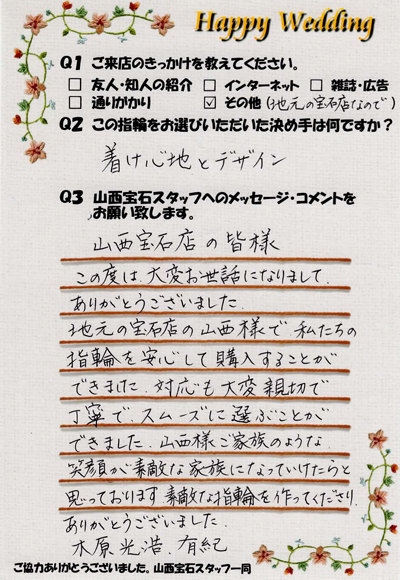 Happy Wedding
Q1 ご来店のきっかけを教えてください。
□ 友人・知人の紹介 □ インターネット □ 雑誌・広告
□ 通りがかり ☑ その他(地元の宝石店なので)
Q2 この指輪をお選びいただいた決め手は何ですか?
着け心地とデザイン
Q3 山西宝石スタッフへのメッセージ・コメントを
お願い致します。
山西宝石店の皆様
この度は、大変お世話になりまして、
ありがとうございました。
地元の宝石店の山西様で、私たちの
指輪を安心して購入することが
できました。対応も大変親切で
丁寧で、スムーズに選ぶことが
できました。山西様ご家族のような、
笑顔が素敵な家族になっていけたらと
思っております。素敵な指輪を作ってくださり、
ありがとうございました。
木原光浩、有紀
ご協力ありがとうございました。山西宝石スタッフ一同